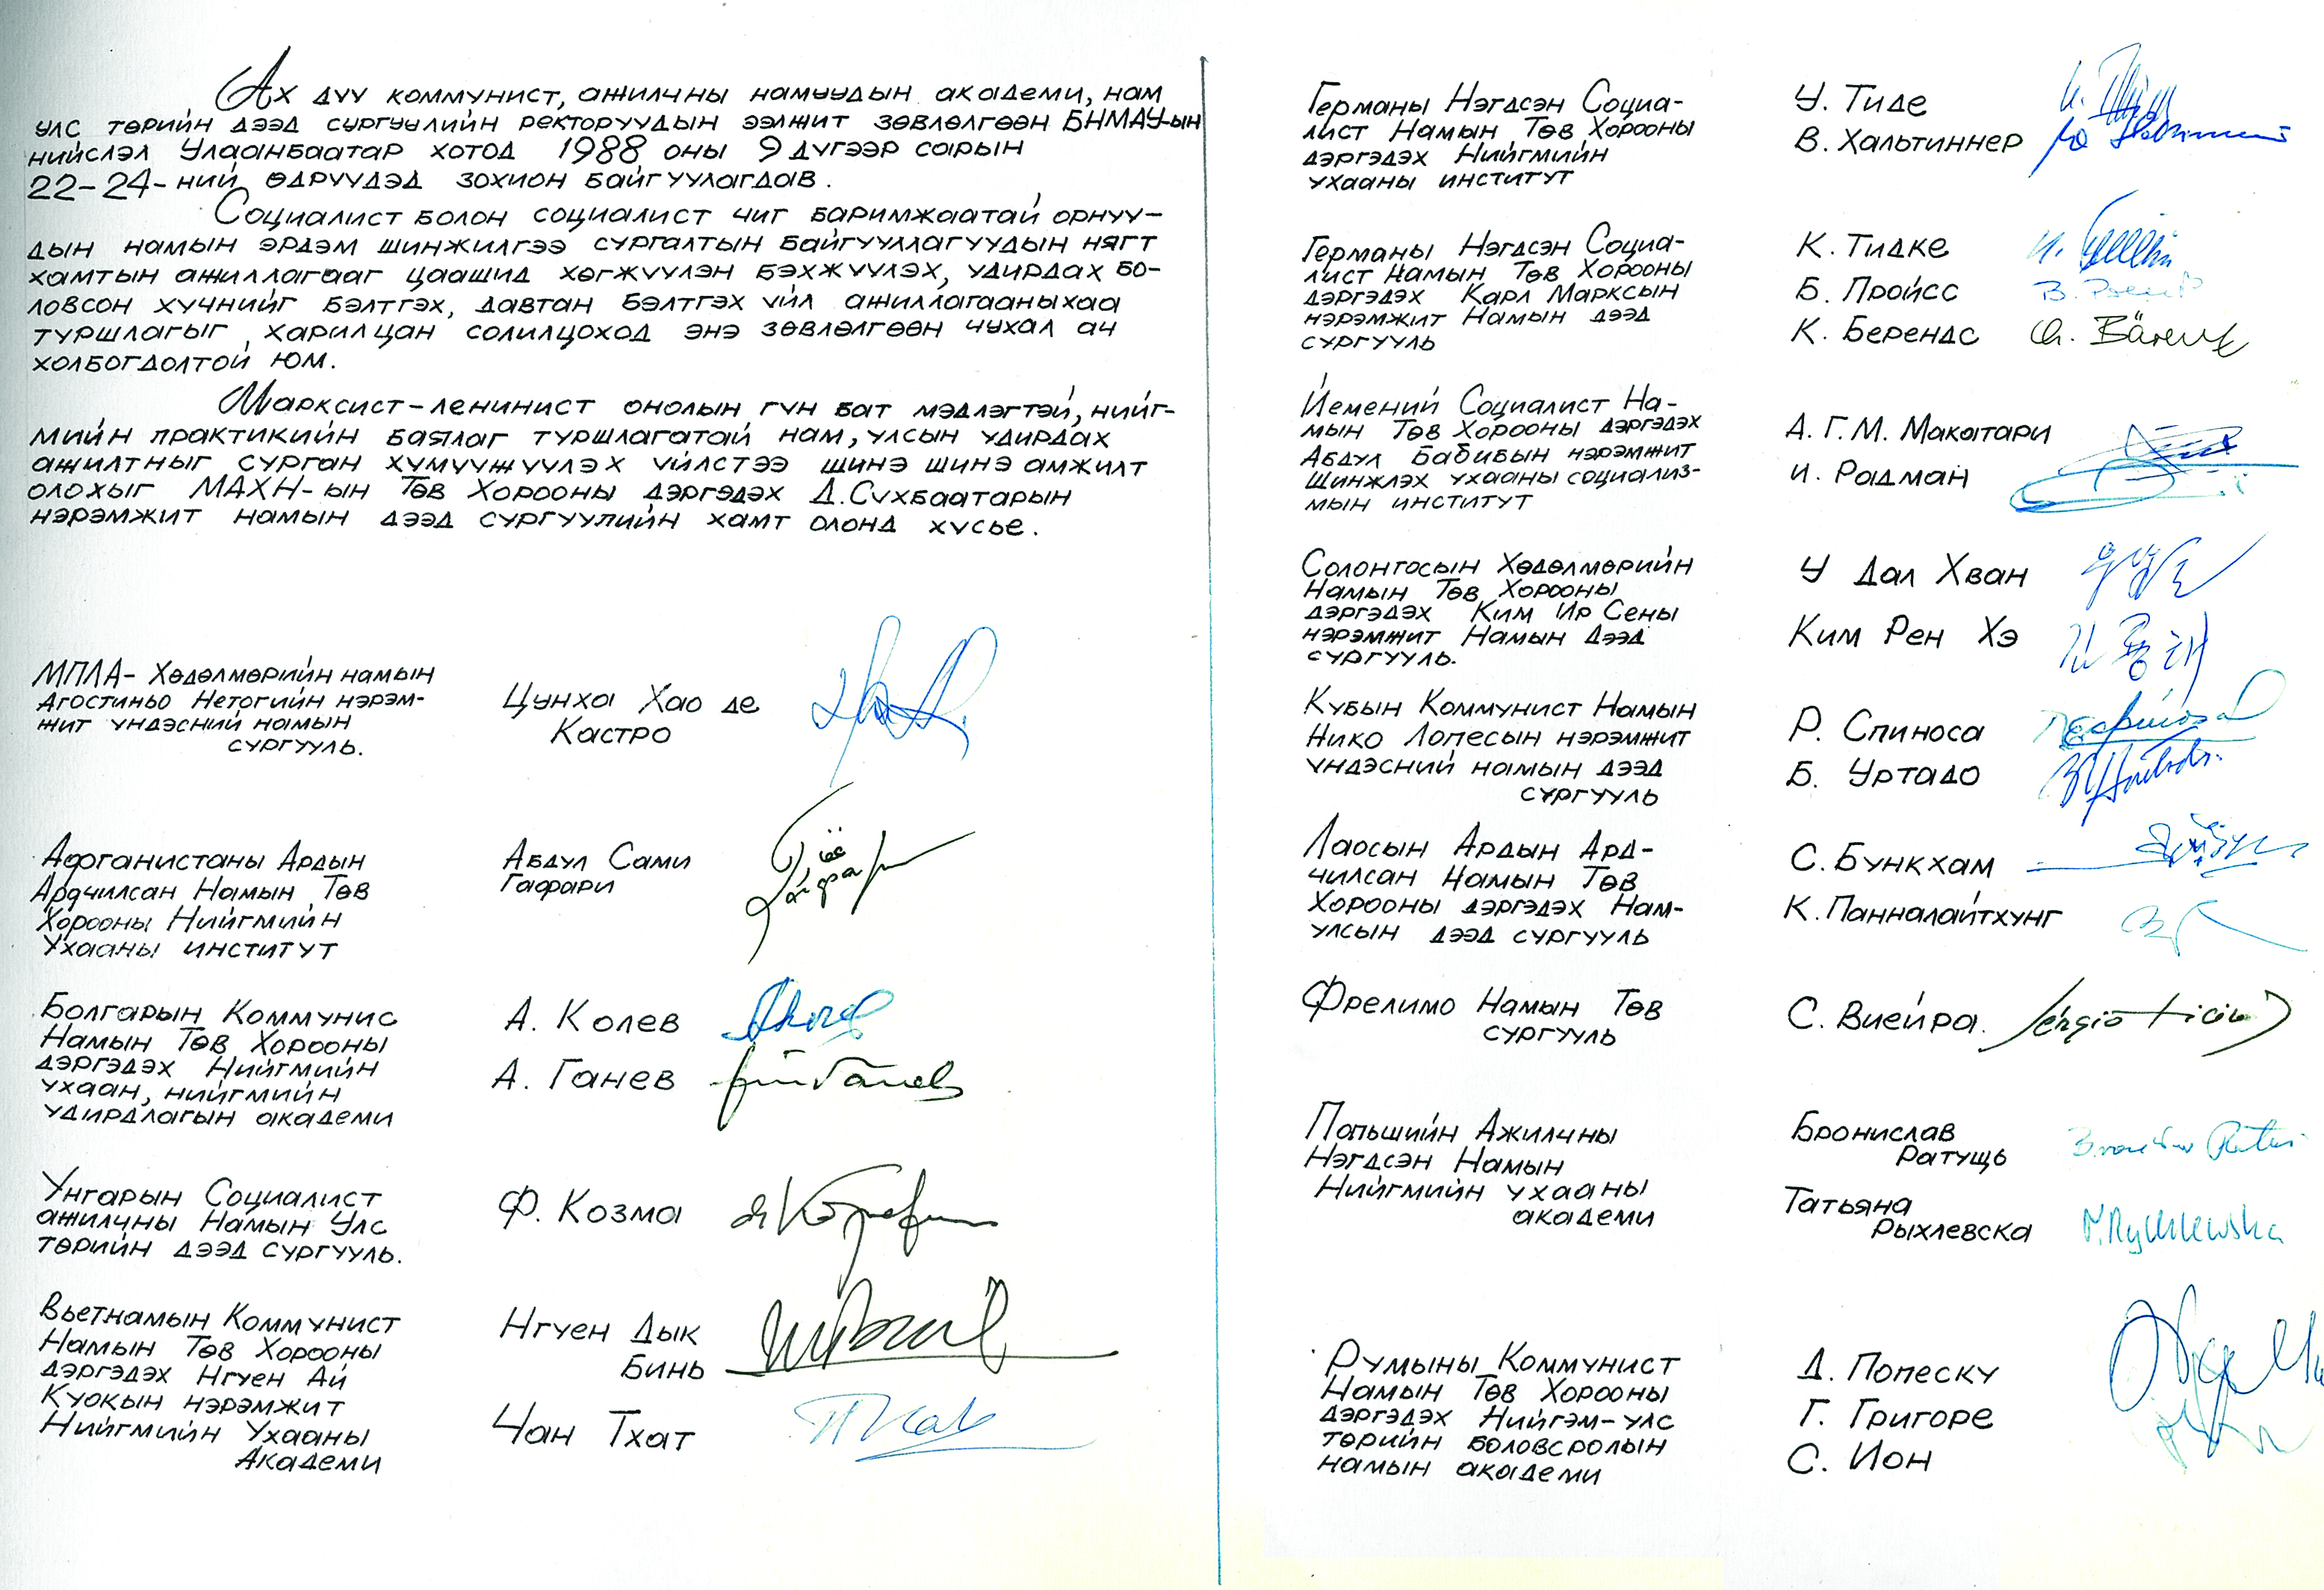 Ах дүү коммунист, ажилчны намуудын академи, нам
улс төрийн дээд сургуулийн ректоруудын ээлжит зөвлөлгөөн БНМАУ-ын
нийслэл Улаанбаатар хотод 1988 оны 9 дүгээр сарын
22-24-ний өдрүүдэд зохион байгуулагдав.
Социалист болон социалист чиг баримжаатай орнуу-
дын намын эрдэм шинжилгээ сургалтын байгууллагуудын нягт
хамтын ажиллагааг цаашид хөгжүүлэн бэхжүүлэх, удирдах бо-
ловсон хүчнийг бэлтгэх, давтан бэлтгэх үйл ажиллагааныхаа
туршлагыг харилцан солилцоход энэ зөвлөлгөөн чухал ач
холбогдолтой юм.
Марксист-ленинист онолын гүн бат мэдлэгтэй, нийг-
мийн практикийн баялаг туршлагатай нам, улсын удирдах
ажилтныг сурган хүмүүжүүлэх үйлстээ шинэ шинэ амжилт
олохыг МАХН-ын Төв Хорооны дэргэдэх Д.Сүхбаатарын
нэрэмжит намын дээд сургуулийн хамт олонд хүсье.
МПЛА- Хөдөлмөрийн намын
Агостиньо Нетогийн нэрэм-
жит үндэсний намын
сургууль.
Цунха Хао де
Кастро
Афганистаны Ардын
Ардчилсан Намын Төв
Хорооны Нийгмийн
Ухааны институт
Абдул Сами
Гафари
Болгарын Коммунис
Намын Төв Хорооны
дэргэдэх Нийгмийн
ухаан, нийгмийн
удирдлагын академи
А. Колев
А. Ганев
Унгарын Социалист
ажилчны Намын Улс
төрийн дээд сургууль.
Ф. Козма
Вьетнамын Коммунист
Намын Төв Хорооны
дэргэдэх Нгуен Ай
Куокын нэрэмжит
Нийгмийн Ухааны
Академи
Нгуен Дык
Бинь
Чан Тхат
Германы Нэгдсэн Социа-
лист Намын Төв Хорооны
дэргэдэх Нийгмийн
ухааны институт
У. Тиде
В. Хальтиннер
Германы Нэгдсэн Социа-
лист Намын Төв Хорооны
дэргэдэх Карл Марксын
нэрэмжит Намын дээд
сургууль
К. Тидке
Б. Пройсс
К. Берендс
Йемений Социалист На-
мын Төв Хорооны дэргэдэх
Абдул Бабибын нэрэмжит
Шинжлэх ухааны социализ-
мын институт
А. Г. М. Макатари
И. Радман
Солонгосын Хөдөлмөрийн
Намын Төв Хорооны
дэргэдэх Ким Ир Сены
нэрэмжит Намын Дээд
сургууль.
У Дал Хван
Ким Рен Хэ
Кубын Коммунист Намын
Нико Лопесын нэрэмжит
үндэсний намын дээд
сургууль
Р. Спиноса
Б. Уртадо
Лаосын Ардын Ард-
чилсан Намын Төв
Хорооны дэргэдэх Нам-
улсын дээд сургууль
С. Бункхам
К. Панналайтхунг
Фрелимо Намын Төв
сургууль
С. Виейра.
Польшийн Ажилчны
Нэгдсэн Намын
Нийгмийн ухааны
академи
Бронислав
Ратущь
Татьяна
Рыхлевска
Румыны Коммунист
Намын Төв Хорооны
дэргэдэх Нийгэм-улс
төрийн боловсролын
намын академи
Д. Попеску
Г. Григоре
С. Ион